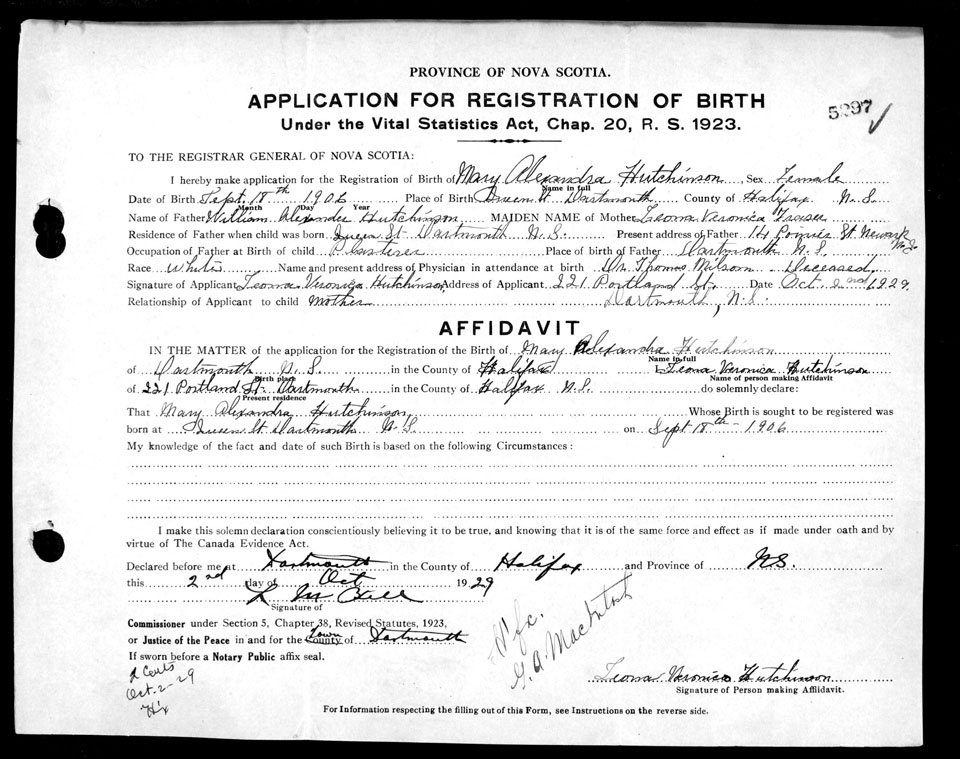 PROVINCE OF NOVA SCOTIA.
APPLICATION FOR REGISTRATION OF BIRTH
5297
Under the Vital Statistics Act, Chap. 20, R. S. 1923.
TO THE REGISTRAR GENERAL OF NOVA SCOTIA:
I hereby make application for the Registration of Birth of Mary Alexandra Hutchinson Sex Female
Name in full
Date of Birth Sept. 18th 1906 Place of Birth Queen St Dartmouth County of Halifax N.S.
Month Day Year
Name of Father William Alexander Hutchinson MAIDEN NAME of Mother Leona Veronica Fraser
Residence of Father when child was born Queen St Dartmouth N.S. Present address of Father 14 St. Newark
Occupation of Father at Birth of child Plasterer Place of birth of Father Dartmouth N.S.
Race White Name and present address of Physician in attendance at birth Dr. Thomas Milsom Deceased
Signature of Applicant Leona Veronica Hutchinson Address of Applicant 221 Portland St. Date Oct 2nd 1929.
Relationship of Applicant to child Mother Dartmouth, N.S.
AFFIDAVIT
IN THE MATTER of the application for the Registration of the Birth of Mary Alexandra Hutchinson
Name in full
of Dartmouth N.S. in the County of Halifax I Leona Veronica Hutchinson
Birth place Name of person making Affidavit
of 221 Portland St. Dartmouth in the County of Halifax N.S. do solemnly declare:
Present residence
That Mary Alexandra Hutchinson, Whose Birth is sought to be registered was
born at Queen St Dartmouth N.S. on Sept 18th - 1906
My knowledge of the fact and date of such Birth is based on the following Circumstances:
I make this solemn declaration conscientiously believing it to be true, and knowing that it is of the same force and effect as if made under oath and by
virtue of The Canada Evidence Act.
Declared before me at Dartmouth in the County of Halifax and Province of N.S.
this 2nd day of Oct 1929
Signature of
Commissioner under Section 5, Chapter 38, Revised Statutes, 1923,
or Justice of the Peace in and for the Town County of Dartmouth
If sworn before a Notary Public affix seal.
G. A. MacIntosh
2 Cents
Oct. 2-29
Hx
Leona Veronica Hutchinson
Signature of Person making Affidavit.
For Information respecting the filling out of this Form, see Instructions on the reverse side.